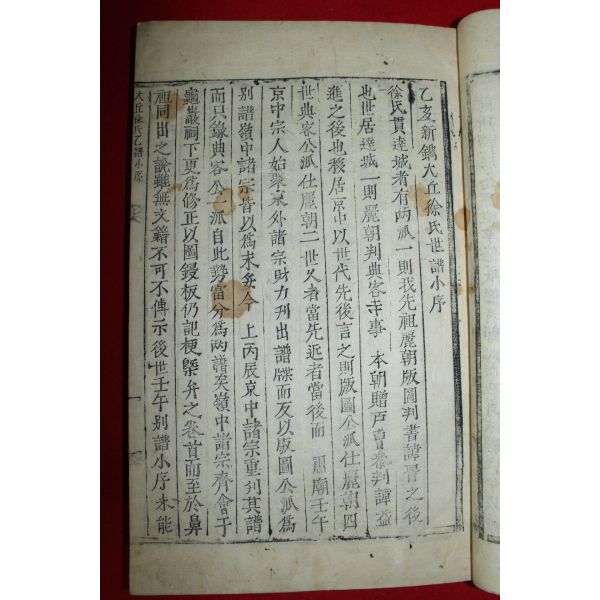 乙亥新鐫大丘徐氏世譜小序
徐氏貫達城者有兩派一則我先祖麗朝版圖判書諱晉之後
也世居達城一則麗朝判典客寺事 本朝贈戶曹叅判諱益
進之後也移居京中以世代先後言之則版圖公派仕麗朝四
世典客公派仕麗朝二世久者當先近者當後而 肅廟壬午
京中宗人始聚京外諸宗財力刊出譜牒而反以版圖公派爲
別譜嶺中諸宗皆以爲未妥今 上丙辰京中諸宗重刊其譜
而只錄典客公一派自此勢當分爲兩譜矣嶺中諸宗齊會于
龜巖祠下更爲修正以圖鋟板仍記梗槩弁之卷首而至於鼻
祖同出之說雖無文籍不可不傳示後世壬午別譜小序未能
大丘徐氏乙譜小序